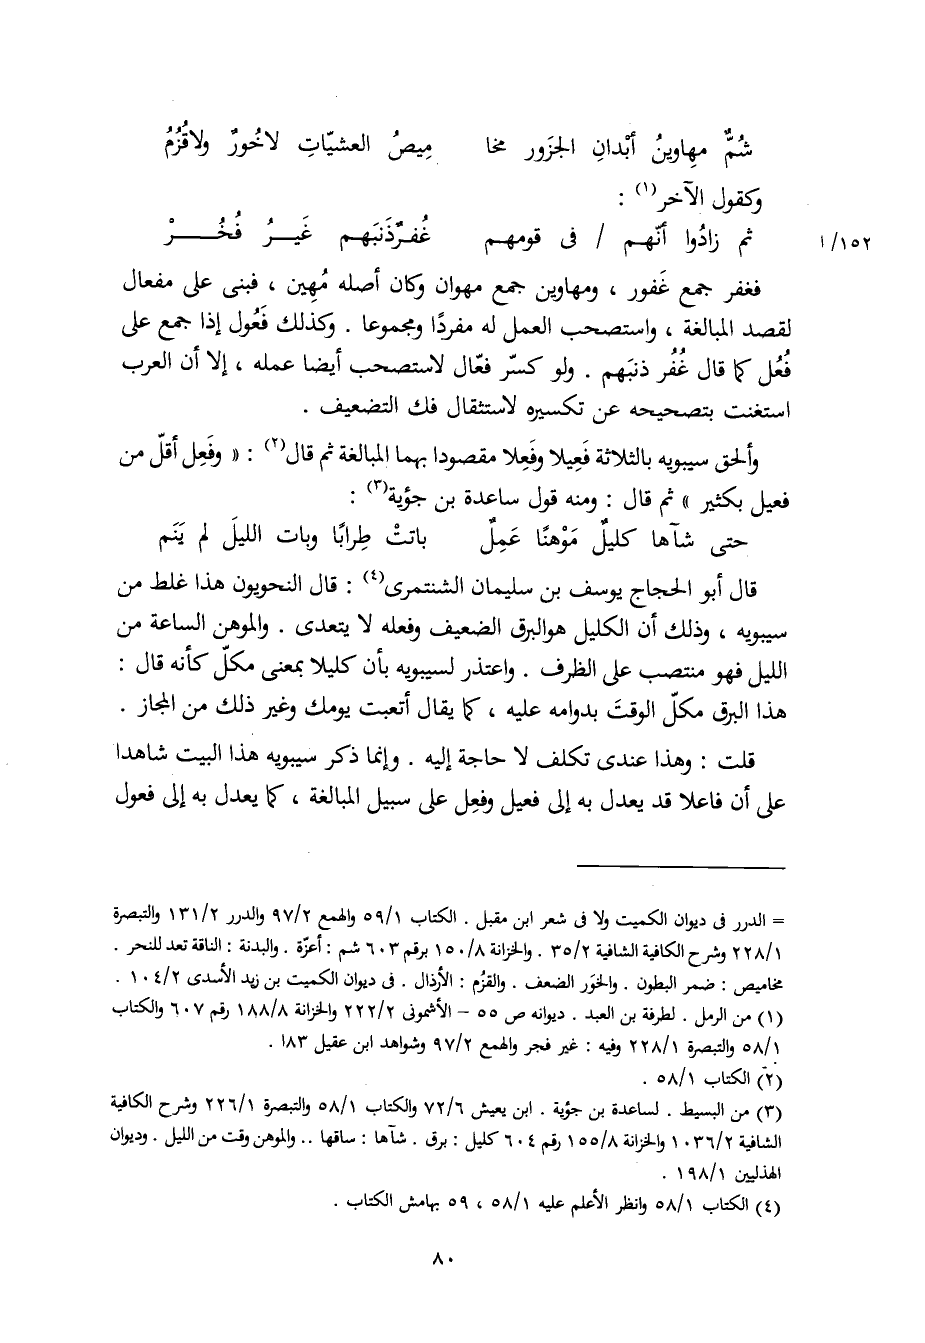 شُمٌّ مهاوينُ أبْدانِ الجزَور مخا مِيصُ العشيّاتِ لاخُورٌ ولاقُزُمُ
وكقول الآخر(١) :
ثم زادُوا أنّهم / فى قومهم غُفرٌذَنبَهم غَيرُ فُخُرْ
١/١٥٢
فغفر جمع غَفور ، ومهاوين جمع مهوان وكان أصله مُهِين ، فبنى على مفعال
لقصد المبالغة ، واستصحب العمل له مفردًا ومجموعا . وكذلك فَعُول إذا جمع على
فُعُل كما قال غُفُر ذنبَهم . ولو كسّر فعّال لاستصحب أيضا عمله ، إلا أن العرب
استغنت بتصحيحه عن تكسيره لاستثقال فك التضعيف .
وألحق سيبويه بالثلاثة فَعِيلا وفَعِلا مقصودا بهما المبالغة ثم قال(٢) : « وفَعِل أقلّ من
فعيل بكثير » ثم قال : ومنه قول ساعدة بن جؤية(٣) :
حتى شآها كليلٌ مَوْهنًا عَمِلٌ باتتْ طِرابًا وبات الليلَ لم يَنَم
قال أبو الحجاج يوسف بن سليمان الشنتمرى(٤) : قال النحويون هذا غلط من
سيبويه ، وذلك أن الكليل هوالبرق الضعيف وفعله لا يتعدى . والموهن الساعة من
الليل فهو منتصب على الظرف . واعتذر لسيبويه بأن كليلا بمعنى مكلّ كأنه قال :
هذا البرق مكلّ الوقتَ بدوامه عليه ، كما يقال أتعبت يومك وغير ذلك من المجاز .
قلت : وهذا عندى تكلف لا حاجة إليه . وإنما ذكر سيبويه هذا البيت شاهدا
على أن فاعلا قد يعدل به إلى فعيل وفعِل على سبيل المبالغة ، كما يعدل به إلى فعول
= الدرر فى ديوان الكميت ولا فى شعر ابن مقبل . الكتاب ٥٩/١ والهمع ٩٧/٢ والدرر ١٣١/٢ والتبصرة
٢٢٨/١ وشرح الكافية الشافية ٣٥/٢ . والخزانة ١٥٠/٨ برقم ٦٠٣ شم : أعزّة . والبدنة : الناقة تعد للنحر .
مخاميص : ضمر البطون . والخَوَر الضعف . والقزُم : الأرذال . فى ديوان الكميت بن زيد الأسدى ١٠٤/٢ .
(١) من الرمل . لطرفة بن العبد . ديوانه ص ٥٥ – الأشمونى ٢٢٢/٢ والخزانة ١٨٨/٨ رقم ٦٠٧ والكتاب
٥٨/١ والتبصرة ٢٢٨/١ وفيه : غير فجر والهمع ٩٧/٢ وشواهد ابن عقيل ١٨٣ .
(٢) الكتاب ٥٨/١ .
(٣) من البسيط . لساعدة بن جؤية . ابن يعيش ٧٢/٦ والكتاب ٥٨/١ والتبصرة ٢٢٦/١ وشرح الكافية
الشافية ١٠٣٦/٢ والخزانة ١٥٥/٨ رقم ٦٠٤ كليل : برق . شآها : ساقها .. والموهن وقت من الليل . وديوان
الهذليين ١٩٨/١ .
(٤) الكتاب ٥٨/١ وانظر الأعلم عليه ٥٨/١ ، ٥٩ بهامش الكتاب .
٨٠